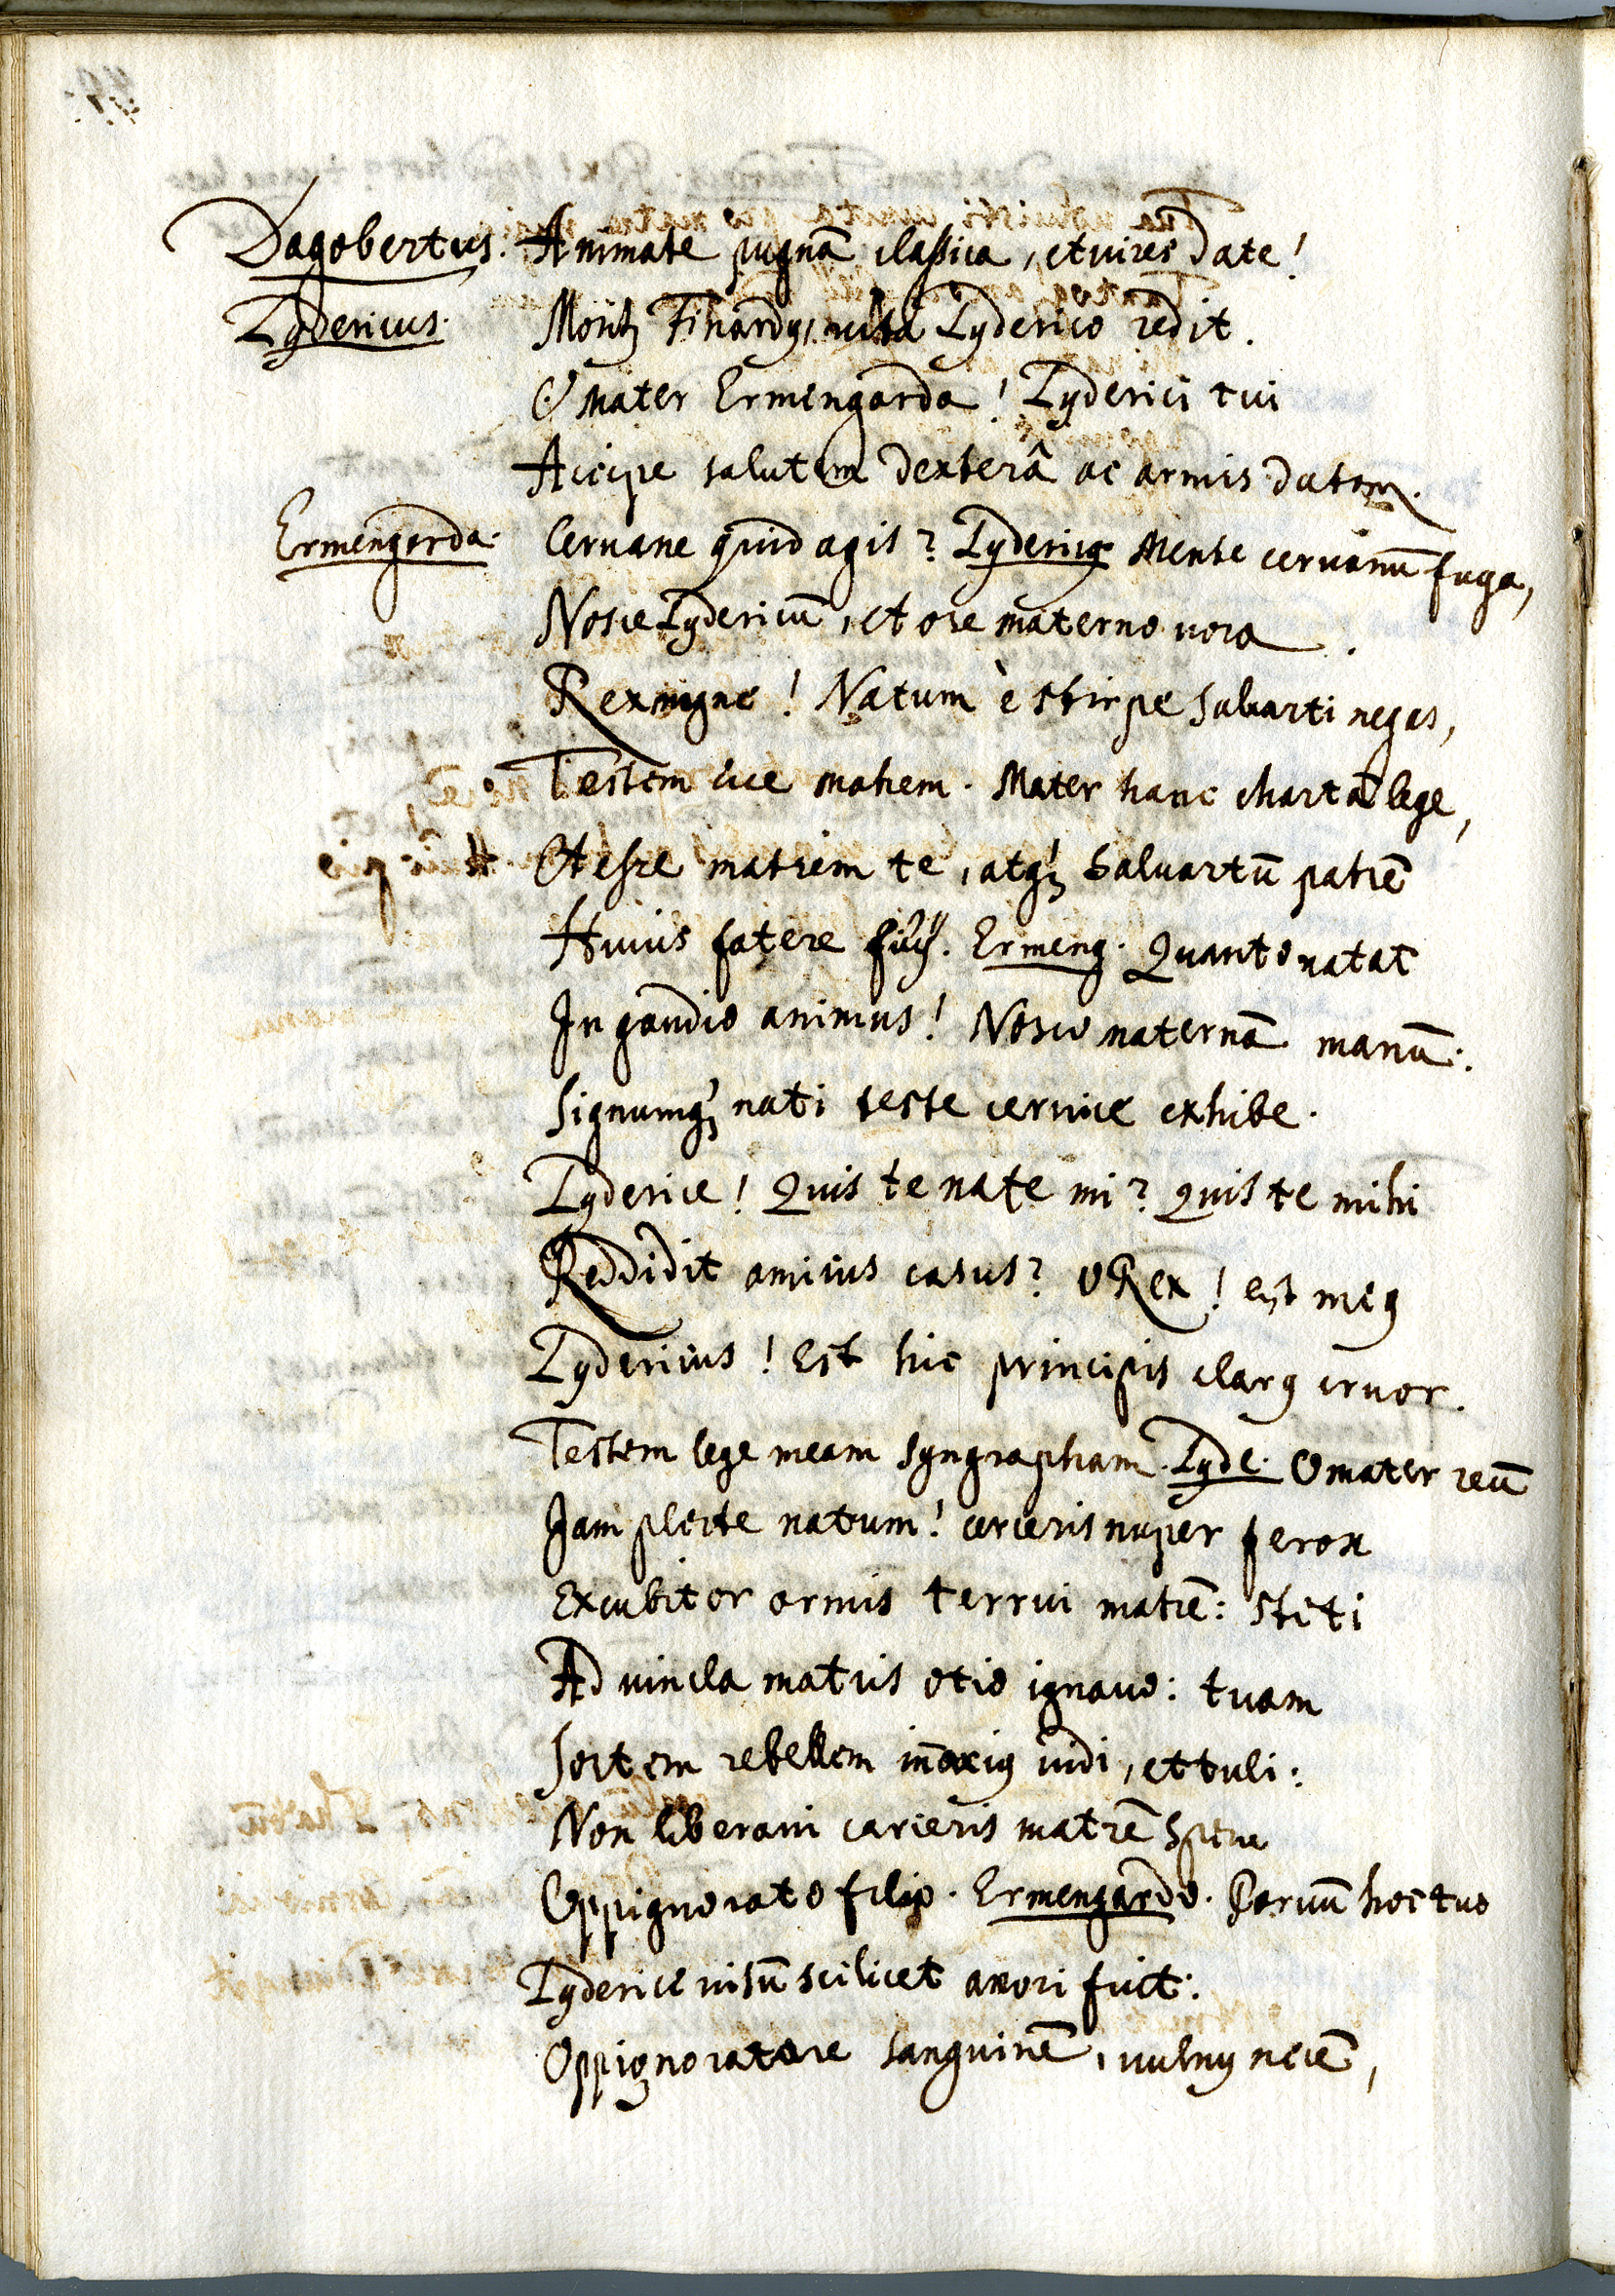 Dagobertus. Animate pugnā classica, et vires date!
Lydericus. Finardus, vita Lyderico redit.
O mater Ermengarda! Lyderici tui
Accipe salutem dexterâ ac armis datam.
Ermengarda. Cervane quid agis? Lydericus Mente cervanū fuga,
Nosce Lydericū, et ore materno voca.
Rex magne! Natum è stirpe Salvarti negas,
Testem ecce matrem. Mater hanc chartā lege,
Et esse matrem te, atq; Salvartū patrē
Huius fatere filij. Ermeng. Quanto natat
In gaudio animus! Nosco maternā manū:
Signumq; nati teste cervice exhibe.
Lyderice! Quis te nate mi? quis te mihi
Reddidit amicus casus? O Rex! est meus
Lydericus! Est hic principis clarus cruor.
Testem lege meam syngrapham. Lyde. O mater reū
Jam plecte natum! carceris nuper ferox
Excubitor armis terrui matrē: steti
Ad vincla matris otio ignavo: tuam
Sortem rebellem inoxius vidi, et tuli:
Non liberavi carceris matrē specu
Oppignorato filio. Ermengarda. Parvū hoc tuo
Lyderice visū scilicet amori fuit:
Oppignoratore sanguinē, vulnus necē,